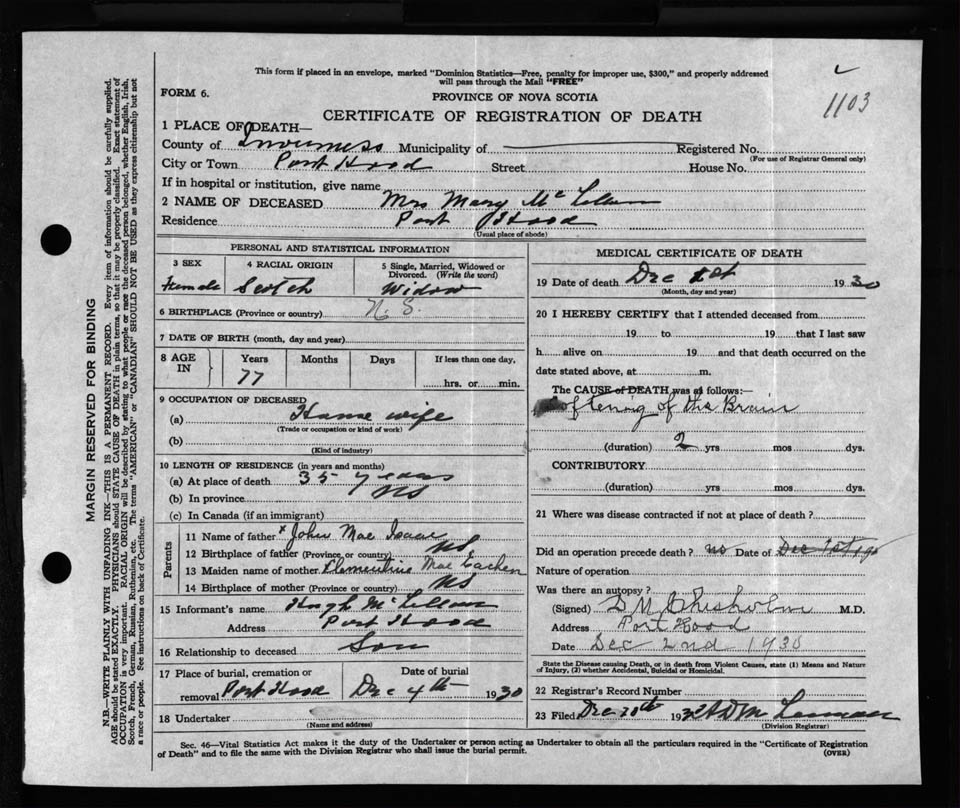 This form if placed in an envelope, marked "Dominion Statistics—Free, penalty for improper use, $300," and properly addressed
will pass through the Mail "FREE"
FORM 6.
PROVINCE OF NOVA SCOTIA
1103
CERTIFICATE OF REGISTRATION OF DEATH
1 PLACE OF DEATH—
County of Inverness Municipality of Registered No.
(For use of Registrar General only)
City or Town Port Hood Street House No.
If in hospital or institution, give name
2 NAME OF DECEASED Mrs Mary McLellan
Residence Port Hood
(Usual place of abode)
PERSONAL AND STATISTICAL INFORMATION
3 SEX
Female
4 RACIAL ORIGIN
Scotch
5 Single, Married, Widowed or
Divorced. (Write the word)
Widow
6 BIRTHPLACE (Province or country) N. S.
7 DATE OF BIRTH (month, day and year)
8 AGE IN
Years Months Days If less than one day,
77 hrs. or min.
9 OCCUPATION OF DECEASED
(a) House wife
(Trade or occupation or kind of work)
(b)
(Kind of industry)
10 LENGTH OF RESIDENCE (in years and months)
(a) At place of death 35 years
(b) In province NS
(c) In Canada (if an immigrant)
Parents
11 Name of father John Mac Isaac
12 Birthplace of father (Province, or country) NS
13 Maiden name of mother Clementine Mac Eachen
14 Birthplace of mother (Province or country) NS
15 Informant's name Hugh McLellan
Address Port Hood
16 Relationship to deceased Son
17 Place of burial, cremation or Date of burial
removal Port Hood Dec 4th 1930
18 Undertaker
(Name and address)
MEDICAL CERTIFICATE OF DEATH
19 Date of death Dec 1st 1930
(Month, day and year)
20 I HEREBY CERTIFY that I attended deceased from
19 to 19 that I last saw
h alive on 19 and that death occurred on the
date stated above, at m.
The CAUSE of DEATH was as follows:—
Softening of the Brain
(duration) 2 yrs mos dys.
CONTRIBUTORY
(duration) yrs mos dys.
21 Where was disease contracted if not at place of death?
Did an operation precede death? no Date of Dec 1st 19
Nature of operation
Was there an autopsy?
(Signed) D M Chisholm M.D.
Address Port Hood
Date Dec 2nd 1930
State the Disease causing Death, or in death from Violent Causes, state (1) Means and Nature
of Injury, (2) whether Accidental, Suicidal or Homicidal.
22 Registrar's Record Number
23 Filed Dec 193
(Division Registrar)
Sec. 46—Vital Statistics Act makes it the duty of the Undertaker or person acting as Undertaker to obtain all the particulars required in the "Certificate of Registration
of Death" and to file the same with the Division Registrar who shall issue the burial permit.
(OVER)
MARGIN RESERVED FOR BINDING
N.B.—WRITE PLAINLY WITH UNFADING INK—THIS IS A PERMANENT RECORD. Every item of information should be carefully supplied.
AGE should be stated EXACTLY. PHYSICIANS should STATE CAUSE OF DEATH in plain terms, so that it may be properly classified. Exact statement of
OCCUPATION is very important. RACIAL ORIGIN will be described by stating to what people or race the deceased person belonged, whether English, Irish,
Scotch, French, German, Russian, Ruthenian, etc. The terms "AMERICAN" or "CANADIAN" SHOULD NOT BE USED as they express citizenship but not
a race or people. See instructions on back of Certificate.